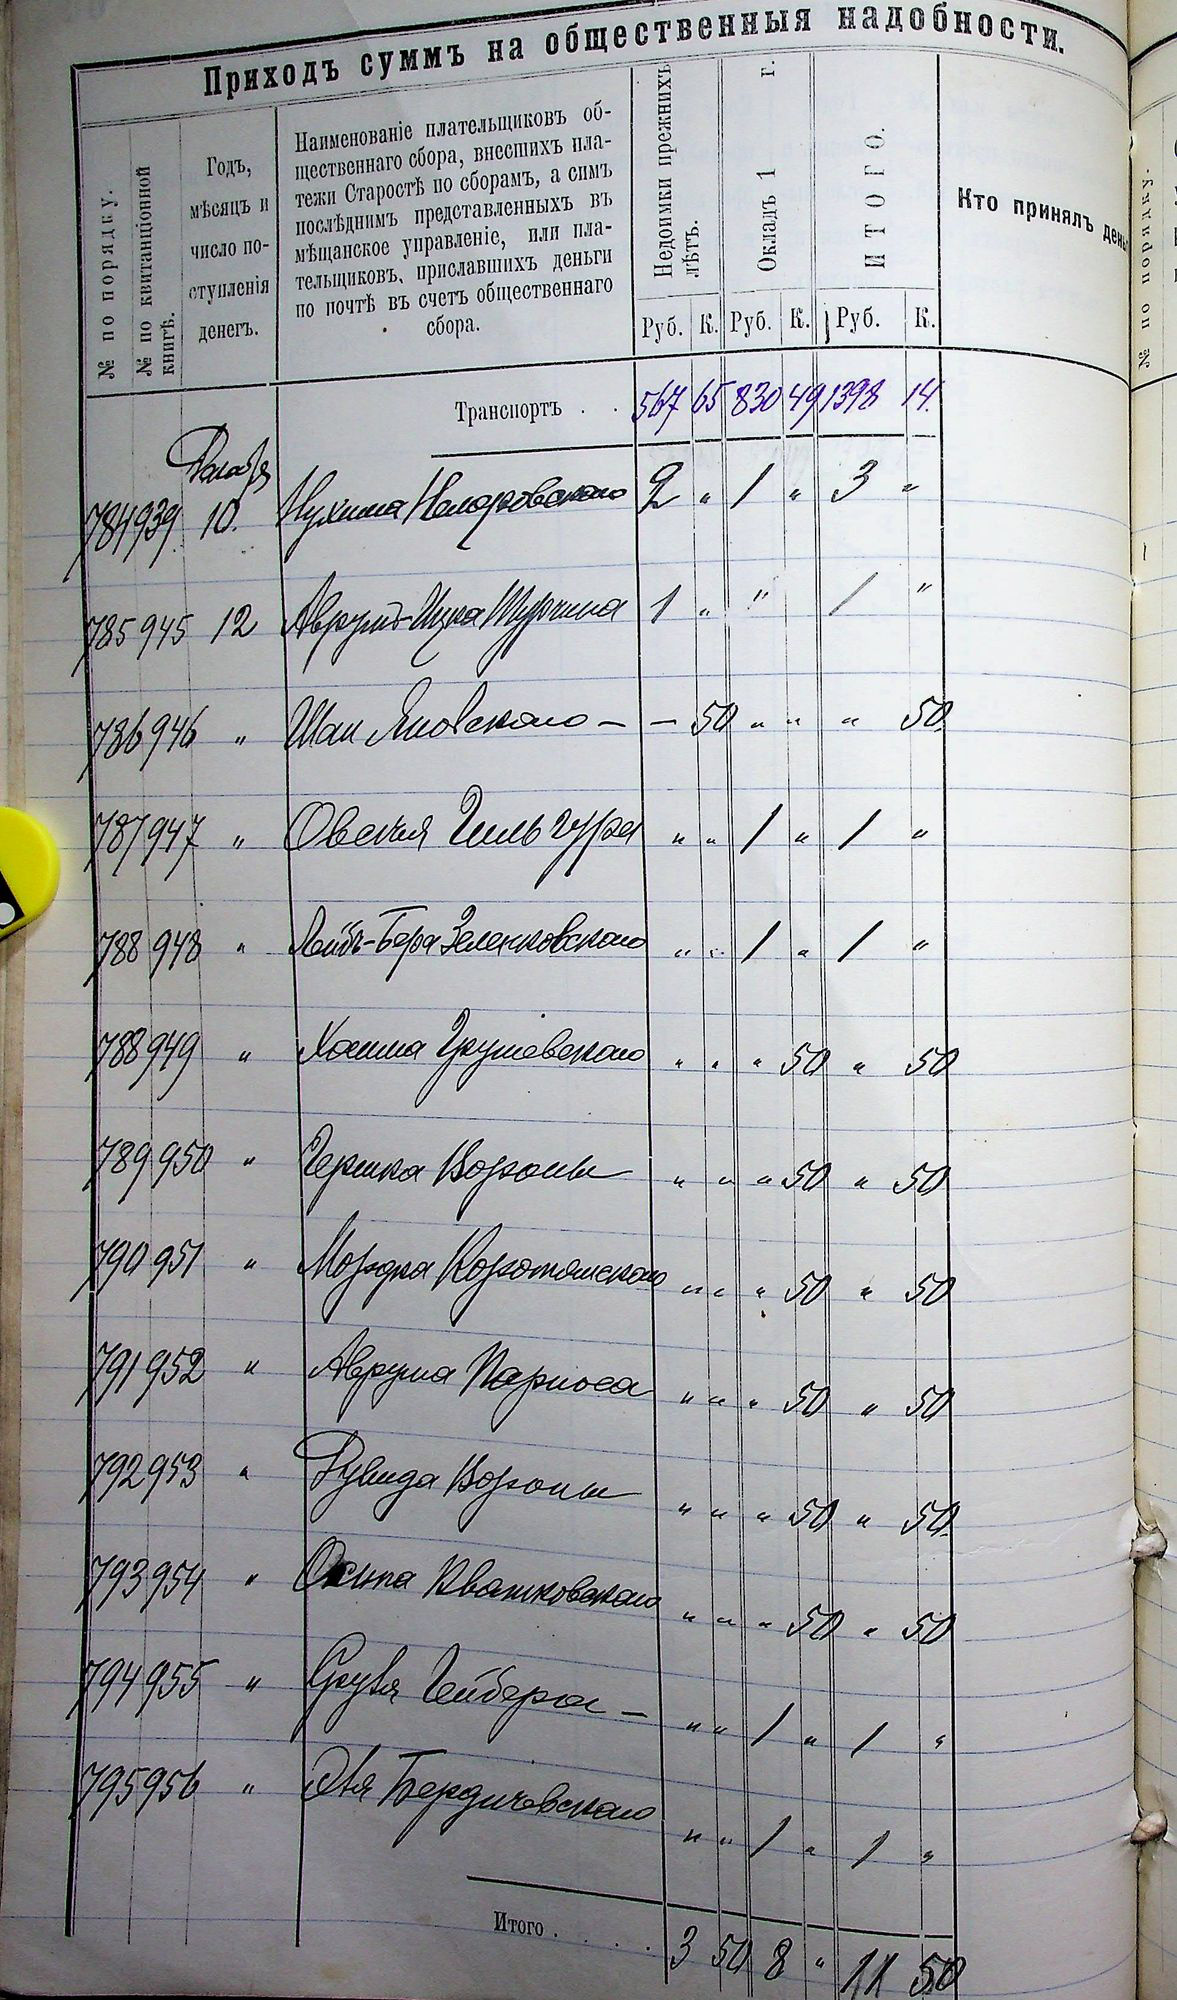 Приходъ суммъ на общественныя надобности.
№ по порядку.
№ по квитанціонной книгѣ.
Годъ, мѣсяцъ и число поступленія денегъ.
Наименованіе плательщиковъ об-
щественнаго сбора, внесшихъ пла-
тежи Старостѣ по сборамъ, а симъ
послѣднимъ представленныхъ въ
мѣщанское управленіе, или пла-
тельщиковъ, приславшихъ деньги
по почтѣ въ счетъ общественнаго
сбора.
Недоимки прежнихъ лѣтъ.
Окладъ 1 г.
ИТОГО.
Кто принялъ день
№ по порядку.
Руб. К. Руб. К. Руб. К.
Транспортъ . . 567 65 830 49 1398 14.
784 939 10. Нухима 2 " 1 " 3 "
785 945 12 Аврумъ-Ицка 1 " " / "
786 946 " Яновскаго – – 50 " " " 50.
787 947 " Овсея " " 1 " 1 "
788 948 " Лейбъ-Бера Зеленковскаго " " 1 " 1 "
788 949 " Хаима Грушевскаго " " " 50 " 50
789 950 " Гершка Вороны " " " 50 " 50
790 951 " Мордка " " " 50 " 50
791 952 " Аврума Парноса " " " 50 " 50
792 953 " Дувида Вороны " " " 50 " 50.
793 954 " Осипа Квятковскаго " " " 50 " 50
794 955 " – " " 1 " 1 "
795 956 " Эля Бердичевскаго " " 1 " 1 "
Итого . . . . 3 50 8 " 11 50